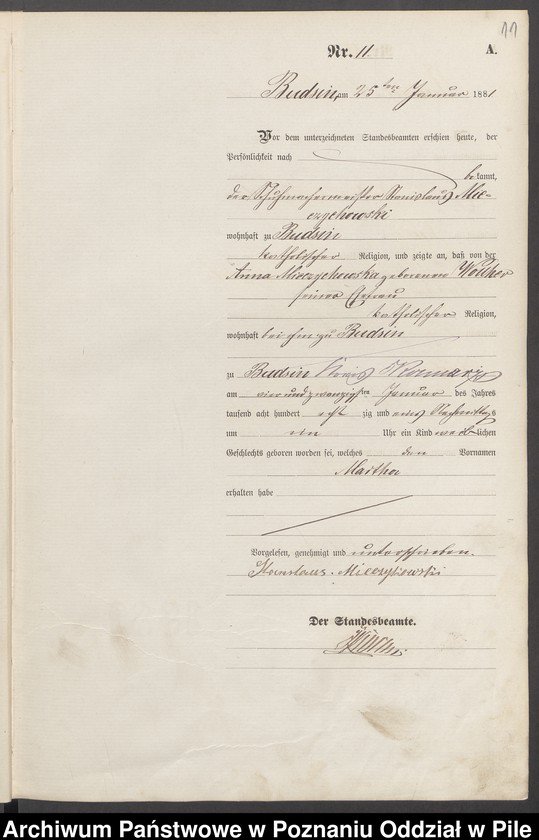 11
Nr. 11
A.
Budsin, am 25ten Januar 1881
Vor dem unterzeichneten Standesbeamten erschien heute, der
Persönlichkeit nach
bekannt,
der Schuhmachermeister Stanislaus Mie-
czychowski
wohnhaft zu Budsin
katholischer Religion, und zeigte an, daß von der
Anna Mieczychowska geborenen
seiner Ehefrau
katholischer Religion,
wohnhaft bei ihm zu Budsin
zu Budsin Kreis
am vier und zwanzigsten Januar des Jahres
tausend acht hundert acht zig und eins Nachmittags
um ein Uhr ein Kind weiblichen
Geschlechts geboren worden sei, welches den Vornamen
Martha
erhalten habe
Vorgelesen, genehmigt und unterschrieben.
Stanislaus
Der Standesbeamte.
Archiwum Państwowe w Poznaniu Oddział w Pile